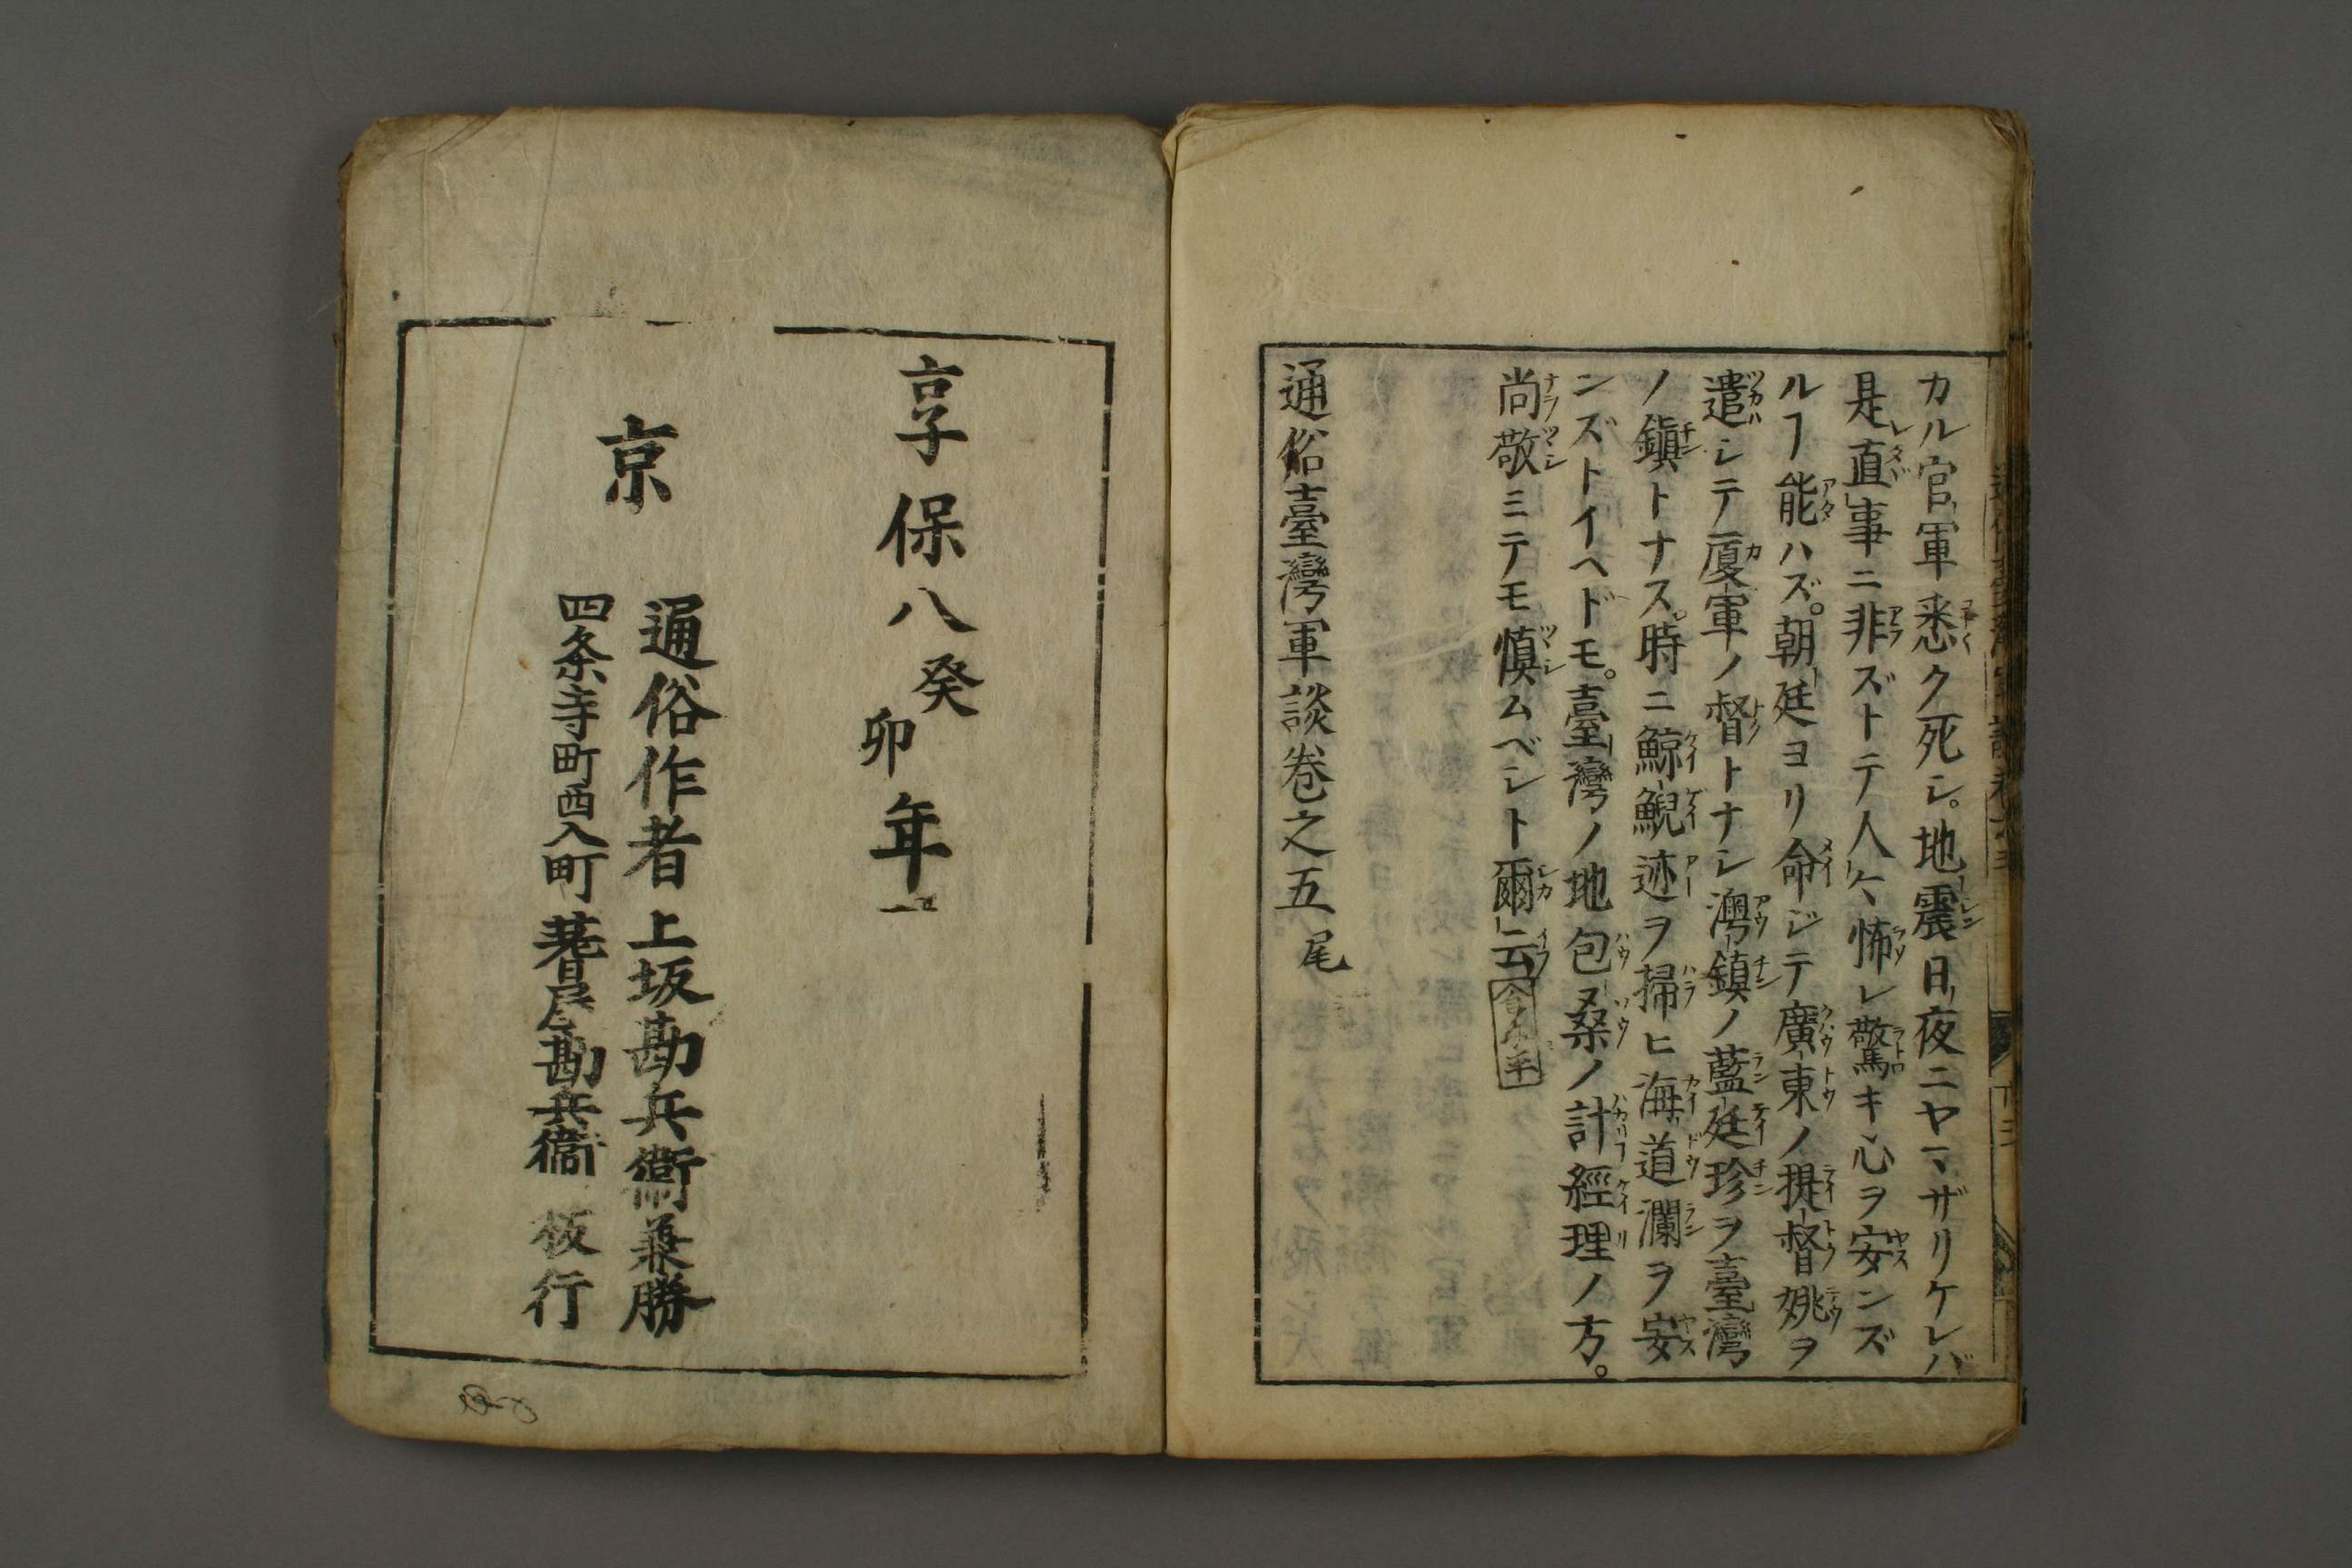 カル官軍悉ク死シ。地震日夜ニヤマザリケレバ
是直事ニ非ズトテ人々怖レ驚キ心ヲ安ンズ
ルヿ能ハズ。朝廷ヨリ命ジテ廣東ノ提督姚ヲ
遣シテ厦軍ノ督トナシ澚鎮ノ藍廷珍ヲ臺灣
ノ鎮トナス。時ニ鯨鯢迹ヲ掃ヒ海道瀾ヲ安
ンズトイヘドモ。臺灣ノ地包桑ノ計經理ノ方。
尚敬ミテモ慎ムベシト爾云
通俗臺灣軍談卷之五尾
享保八癸卯年
京
通俗作者上坂勘兵衛兼勝
四条寺町西入町 蓍屋勘兵衛 板行